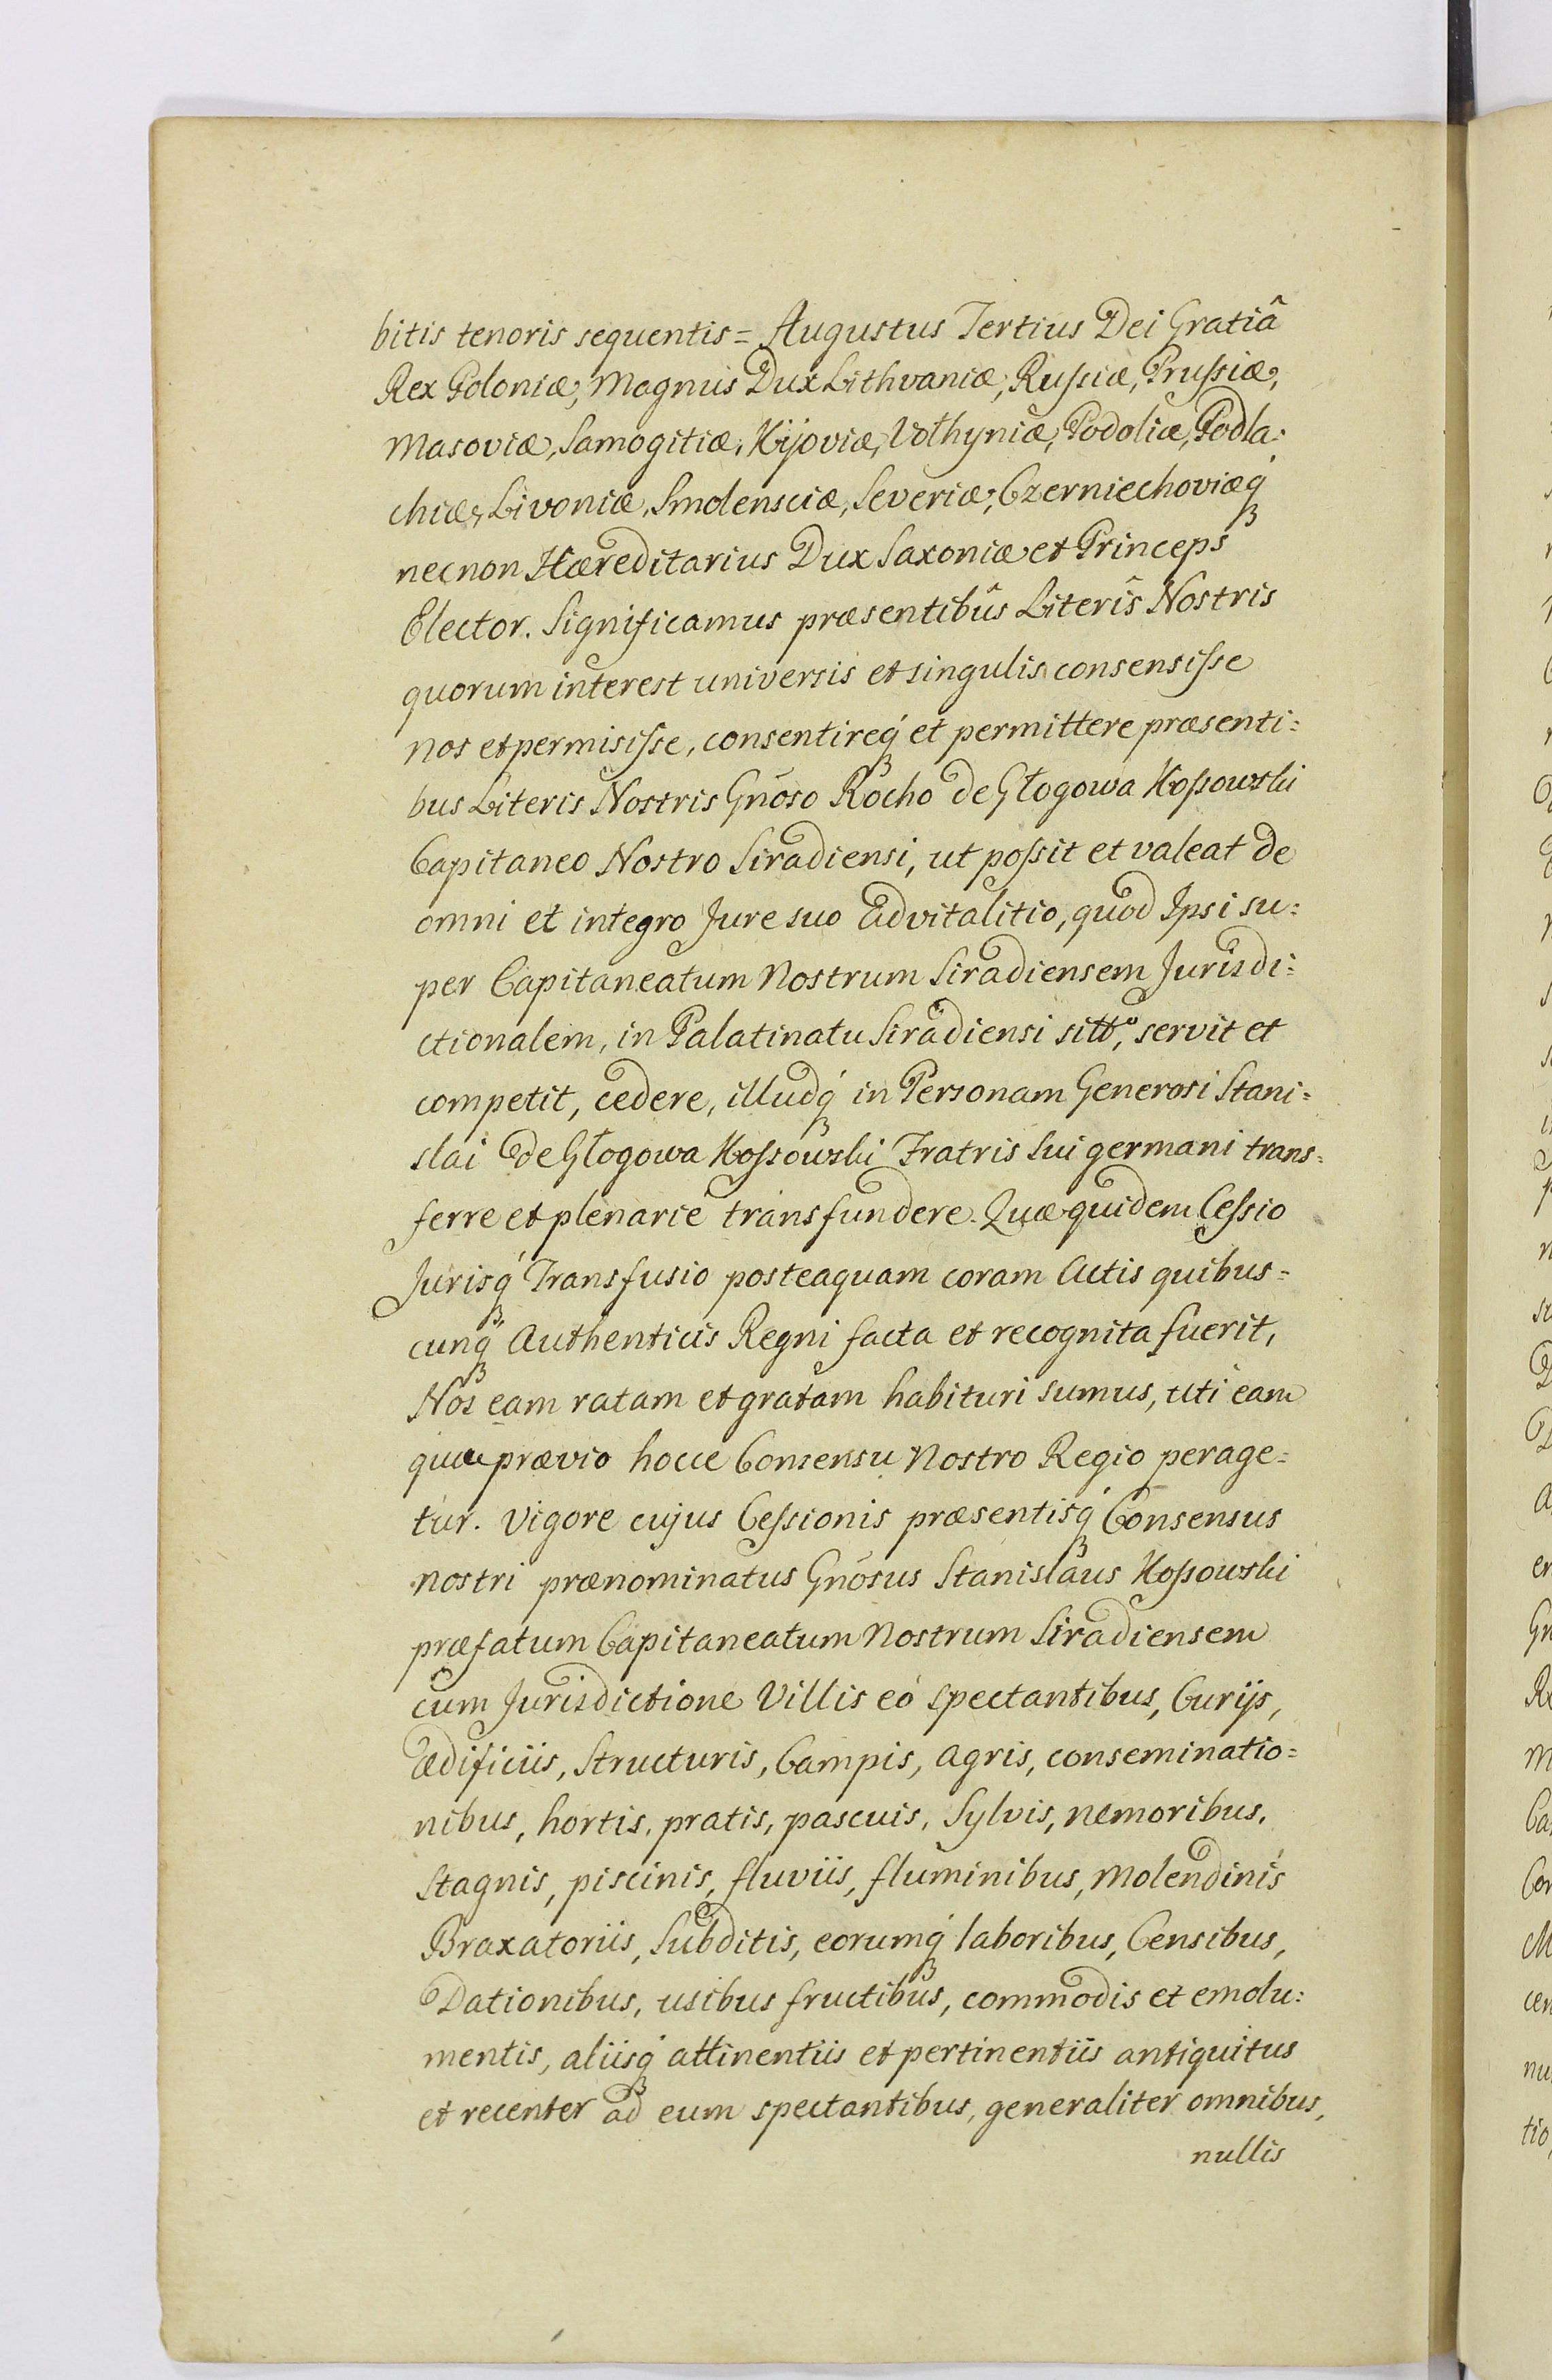 bitis tenoris sequentis = Augustus Tertius Dei Gratiâ
Rex Poloniæ, Magnus Dux Lithvaniæ, Rußiæ, Prußiæ,
Masoviæ, Samogitiæ, Kijoviæ, Vołhyniæ, Podoliæ, Podla:
chiæ, Livoniæ, Smolensciæ, Severiæ, Czerniechoviæq́ꝫ
necnon Hæreditarius Dux Saxoniæ et Princeps
Elector. Significamus præsentibûs Literîs Nostris
quorum interest universis et singulis consensiſse
nos et permisiſse, consentireq́ꝫ et permittere præsenti:
bus Literis Nostris Gnōso Rocho de Głogowa Koßowski
Capitaneo Nostro Siradiensi, ut poßit et valeat de
omni et integro Jure suo Advitalitio, quod Ipsi su:
per Capitaneatum Nostrum Siradiensem Jurisdi:
ctionalem, in Palatinatu Siradiensi sittō, servit et
competit, cedere, illudq́ꝫ in Personam Generosi Stani:
slai de Głogowa Koßowski Fratris Sui germani trans:
ferre et plenarie transfundere. Quæ quidem Ceßio
Jurisq́ꝫ Transfusio posteaquam coram Actis quibus:
cunq́ꝫ Authenticis Regni facta et recognita fuerit,
Nos eam ratam et gratam habituri sumus, uti eam
quæ prævio hocce Consensu Nostro Regio perage:
tur. Vigore cujus Ceßionis præsentisq́ꝫ Consensus
nostri prænominatus Gnōsus Stanislaus Koßowski
præfatum Capitaneatum Nostrum Siradiensem
cum Jurisdictione Villis eó spectantibus, Curijs,
ædificiis, Structuris, Campis, agris, conseminatio:
nibus, hortis, pratis, pascuis, Sylvis, nemoribus,
Stagnis, piscinis, fluviis, fluminibus, Molendinis
Braxatoriis, Subditis, eorumq́ꝫ laboribus, Censibus,
Dationibus, usibus fructibus, commodis et emolu:
mentis, aliisq́ꝫ attinentiis et pertinentiis antiquitus
et recenter ad eum spectantibus, generaliter omnibus,
nullis